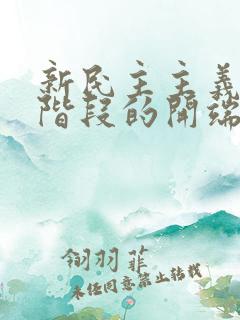 新民主主義
階段的開端
翎羽菲
未经同意禁止转载